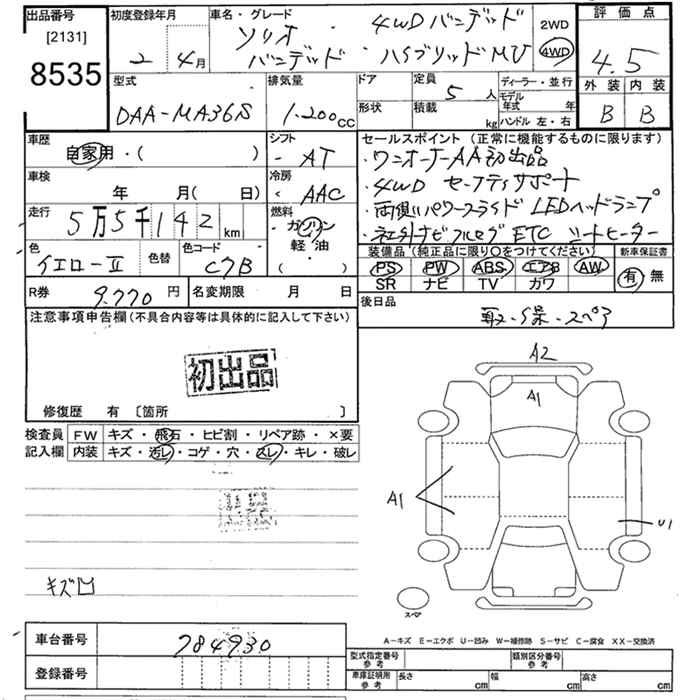 出品番号
[2131]
8535
初度登録年月
2年 4月
車名・グレード
ソリオバンディット
4WD バンディッド
ハイブリッドMV
2WD
4WD
評価点
4.5
外装 内装
B B
型式
DAA-MA36S
排気量
1,200cc
ドア
形状
定員
5人
積載
kg
ディーラー・並行
モデル年式 年
ハンドル 左・右
車歴
自家用・( )
車検
年 月( 日)
走行
5万5千142km
色
イエロー II
色替
色コード
C7B
シフト
- AT
冷房
AAC
燃料
ガソリン
軽油
( )
セールスポイント (正常に機能するものに限ります)
・ワンオーナーAA初出品
・4WD セーフティサポート
・両側パワースライド LEDヘッドランプ
・社外ナビ フルセグ ETC シートヒーター
装備品 (純正品に限り○をつけてください)
新車保証書
PS PW ABS エアB AW
SR ナビ TV カワ
有 無
R券
9.770円
名変期限 月 日
後日品
取・保・スペア
注意事項申告欄(不具合内容等は具体的に記入して下さい)
初出品
修復歴 有 〔箇所 〕
検査員
記入欄
FW キズ・飛石・ヒビ割・リペア跡・×要
内装 キズ・汚レ・コゲ・穴・スレ・キレ・破レ
キズ凹
A2
A1
A1
U1
スペア
A-キズ E-エクボ U-凹み W-補修跡 S-サビ C-腐食 XX-交換済
車台番号
784930
登録番号
型式指定番号
参考
類別区分番号
参考
車庫証明用
参考
長さ cm
幅 cm
高さ cm